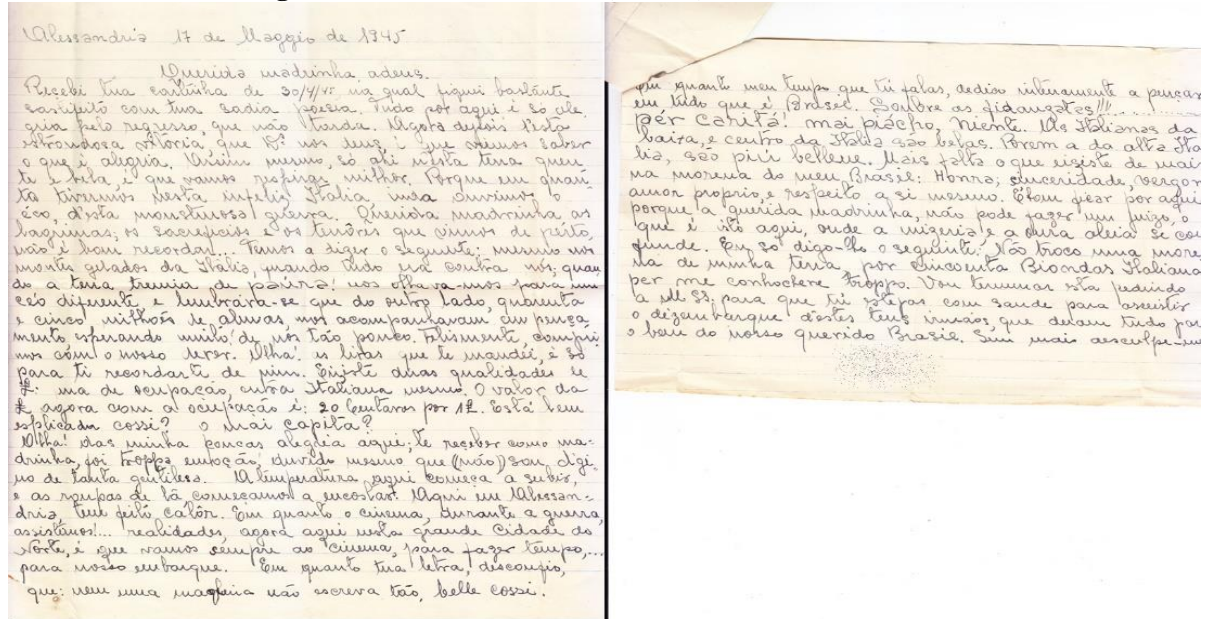 Alessandria 17 de Maggio de 1945
Querida madrinha, adeus.
Recebi tua cartinha de 30/4/45 na qual fiquei bastante
satisfeito com tua sadia poesia. Tudo por aqui é só ale
gria pelo regresso, que não tarda. Agora depois d'esta
estrondosa vitoria, que Dº nos deu, é que vamos saber
o que é alegria. Assim mesmo, só ahi nesta terra quen
te e bela, é que vamos respirar milhor. Porque em quan
to tivermos nesta infeliz Italia, inda ouvimos o
éco, d'esta monstruosa guerra. Querida madrinha as
lagrimas, os sacrificios e os tendres que vimos de perto,
não é bom recordar... Temos a dizer o seguinte: mesmo nos
montes gelados da Italia, quando tudo era contra nós; quan
do a terra, tremia de paúra! nos olhava-mos para um
céo diferente e lembrára-se que do outro lado, quarenta
e cinco milhões de almas, nos acompanhavam, em pença
mento, esperando muito de nós tão pouco. Felismente, compri
mos com o nosso dever. Olha! as liras que te mandei, é só
para ti recordarti de mim. Existe duas qualidades de
£: uma de ocupação, outra Italiana mesmo. O valor da
£ agora com a ocupação é: 20 Centavos por 1£. Está bem
esplicado cossi? o mai capita?
Olha! das minha poucas alegria aqui; te receber como ma-
drinha, foi troppa emoção, duvido mesmo que ((não)) sou, digi
no de tanta gentilesa. A temperatura, aqui começa a subir,
e as roupas de lã, começamos a encostar. Aqui em Alessan=
dria, tem feito calôr. Em quanto o cinema, durante a guerra,
assistimos!... realidades, agora aqui nesta grande Cidade do
Norte, é que vamos sempre ao cinema, para fazer tempo,...
para nosso embarque. Em quanto tua letra, disconfio,
que: nem uma maquina não escreva tão, belle cossi.
Em quanto meu tempo que tú falas, dedico inteiramente a pençar
em tudo que é Brasil. Sombre as fidanzatas!!!
pér carità! mai piácho, niente. As Italianas da
baixa, e centro da Italia são belas. Porem a da alta Ita
lia, são piú bellene. Mais falta o que existe de mais
na morena do meu Brasil: Honra, sinceridade, vergon
amor proprio, e respeito a si mesmo. É bom ficar por aqui
porque a querida madrinha, não pode fazer um juizo, o
que é isto aqui, onde a mizeria e a cuxa aleia se con
funde. Eu só digo-lhe o seguinte: Não troco uma more
na de minha terra, por cincoenta Biondas Italiana
per me conhochere troppo. Vou terminar esta pedindo
a M SS. para que tú estejas com saude para assistir
o dezembarque d'estes teus irmãos, que deram tudo por
o bem do nosso querido Brasil. Sem mais desculpe-me